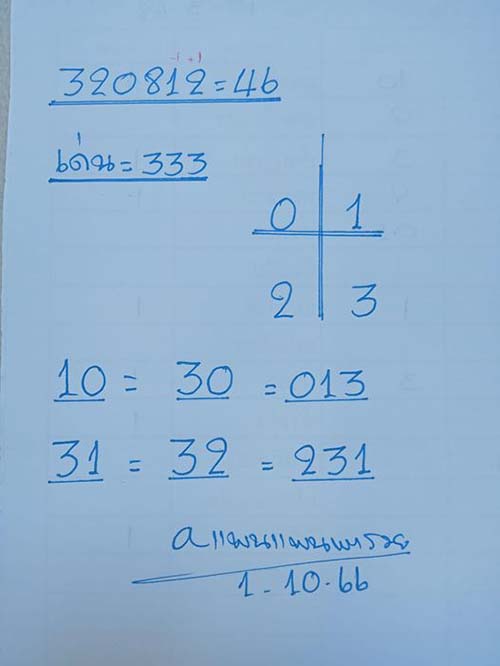 -1 +1
320812=46
เด่น=333
0 1
2 3
10 = 30 = 013
31 = 32 = 231
1-10.66